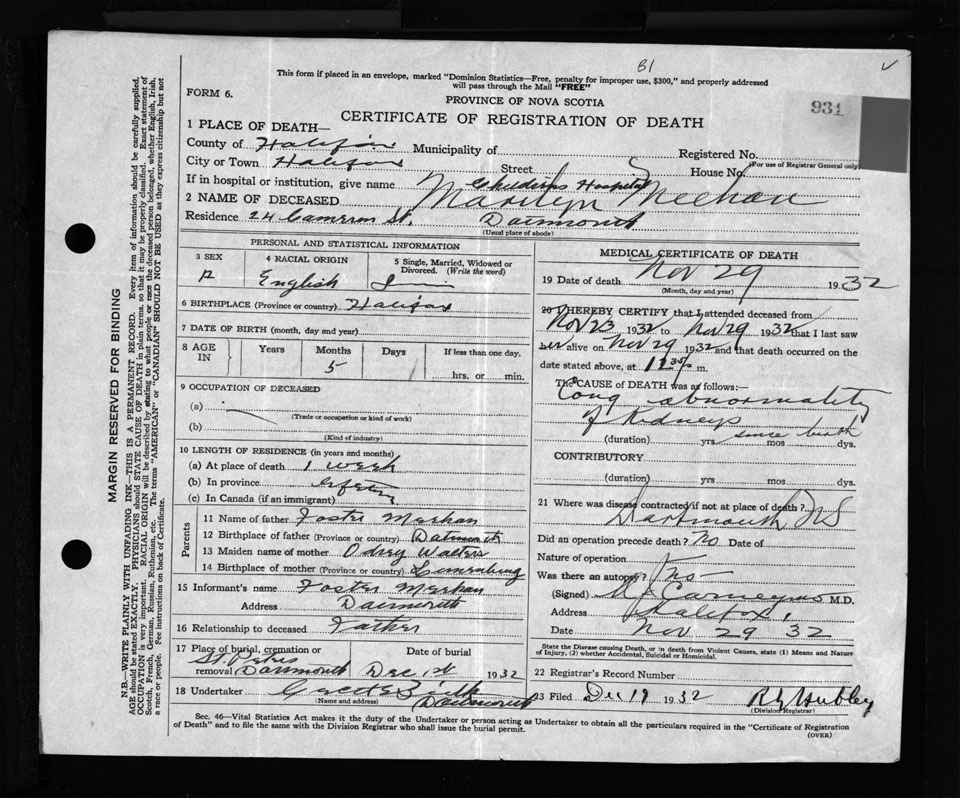 B1
This form if placed in an envelope, marked "Dominion Statistics—Free, penalty for improper use, $300," and properly addressed
will pass through the Mail "FREE"
FORM 6.
PROVINCE OF NOVA SCOTIA
931
CERTIFICATE OF REGISTRATION OF DEATH
1 PLACE OF DEATH—
County of Halifax Municipality of Registered No.
(For use of Registrar General only)
City or Town Halifax Street House No.
If in hospital or institution, give name Childrens Hospital
2 NAME OF DECEASED Marilyn Meehan
Residence 24 Cameron St, Dartmouth
(Usual place of abode)
PERSONAL AND STATISTICAL INFORMATION
3 SEX 4 RACIAL ORIGIN 5 Single, Married, Widowed or
Divorced. (Write the word)
English
6 BIRTHPLACE (Province or country) Halifax
7 DATE OF BIRTH (month, day and year)
8 AGE IN Years Months Days If less than one day,
5 hrs. or min.
9 OCCUPATION OF DECEASED
(a)
(Trade or occupation or kind of work)
(b)
(Kind of industry)
10 LENGTH OF RESIDENCE (in years and months)
(a) At place of death 1 week
(b) In province
(c) In Canada (if an immigrant)
Parents
11 Name of father Foster Meehan
12 Birthplace of father (Province or country) Dartmouth
13 Maiden name of mother Odrey Walters
14 Birthplace of mother (Province or country) Lunenburg
15 Informant's name Foster Meehan
Address Dartmouth
16 Relationship to deceased Father
17 Place of burial, cremation or removal St. Peters Dartmouth
Date of burial Dec 1st 1932
18 Undertaker
(Name and address) Dartmouth
MEDICAL CERTIFICATE OF DEATH
19 Date of death Nov 29 1932
(Month, day and year)
20 I HEREBY CERTIFY that I attended deceased from
Nov 23 1932 to Nov 29 1932 that I last saw
her alive on Nov 29 1932 and that death occurred on
date stated above, at m.
The CAUSE OF DEATH was as follows:—
Cong abnormality
of Kidneys
(duration) yrs since birth mos dys.
CONTRIBUTORY
(duration) yrs mos dys.
21 Where was disease contracted if not at place of death?
Dartmouth NS
Did an operation precede death? No Date of
Nature of operation
Was there an autopsy? No
(Signed) M.D.
Address Halifax,
Date Nov 29 32
State the Disease causing Death, or in death from Violent Causes, state (1) Means and Nature
of Injury, (2) whether Accidental, Suicidal or Homicidal.
22 Registrar's Record Number
23 Filed Dec 19 1932 Hubley
(Division Registrar)
Sec. 46—Vital Statistics Act makes it the duty of the Undertaker or person acting as Undertaker to obtain all the particulars required in the "Certificate of Registration
of Death" and to file the same with the Division Registrar who shall issue the burial permit.
(OVER)
MARGIN RESERVED FOR BINDING
N.B.—WRITE PLAINLY WITH UNFADING INK—THIS IS A PERMANENT RECORD. Every item of information should be carefully supplied.
AGE should be stated EXACTLY. PHYSICIANS should STATE CAUSE OF DEATH in plain terms, so that it may be properly classified. Exact statement of
OCCUPATION is very important. RACIAL ORIGIN will be described by stating to what people or race the deceased person belonged, whether English, Irish,
Scotch, French, German, Russian, Ruthenian, etc. The terms "AMERICAN" or "CANADIAN" SHOULD NOT BE USED as they express citizenship but not
a race or people. See instructions on back of Certificate.